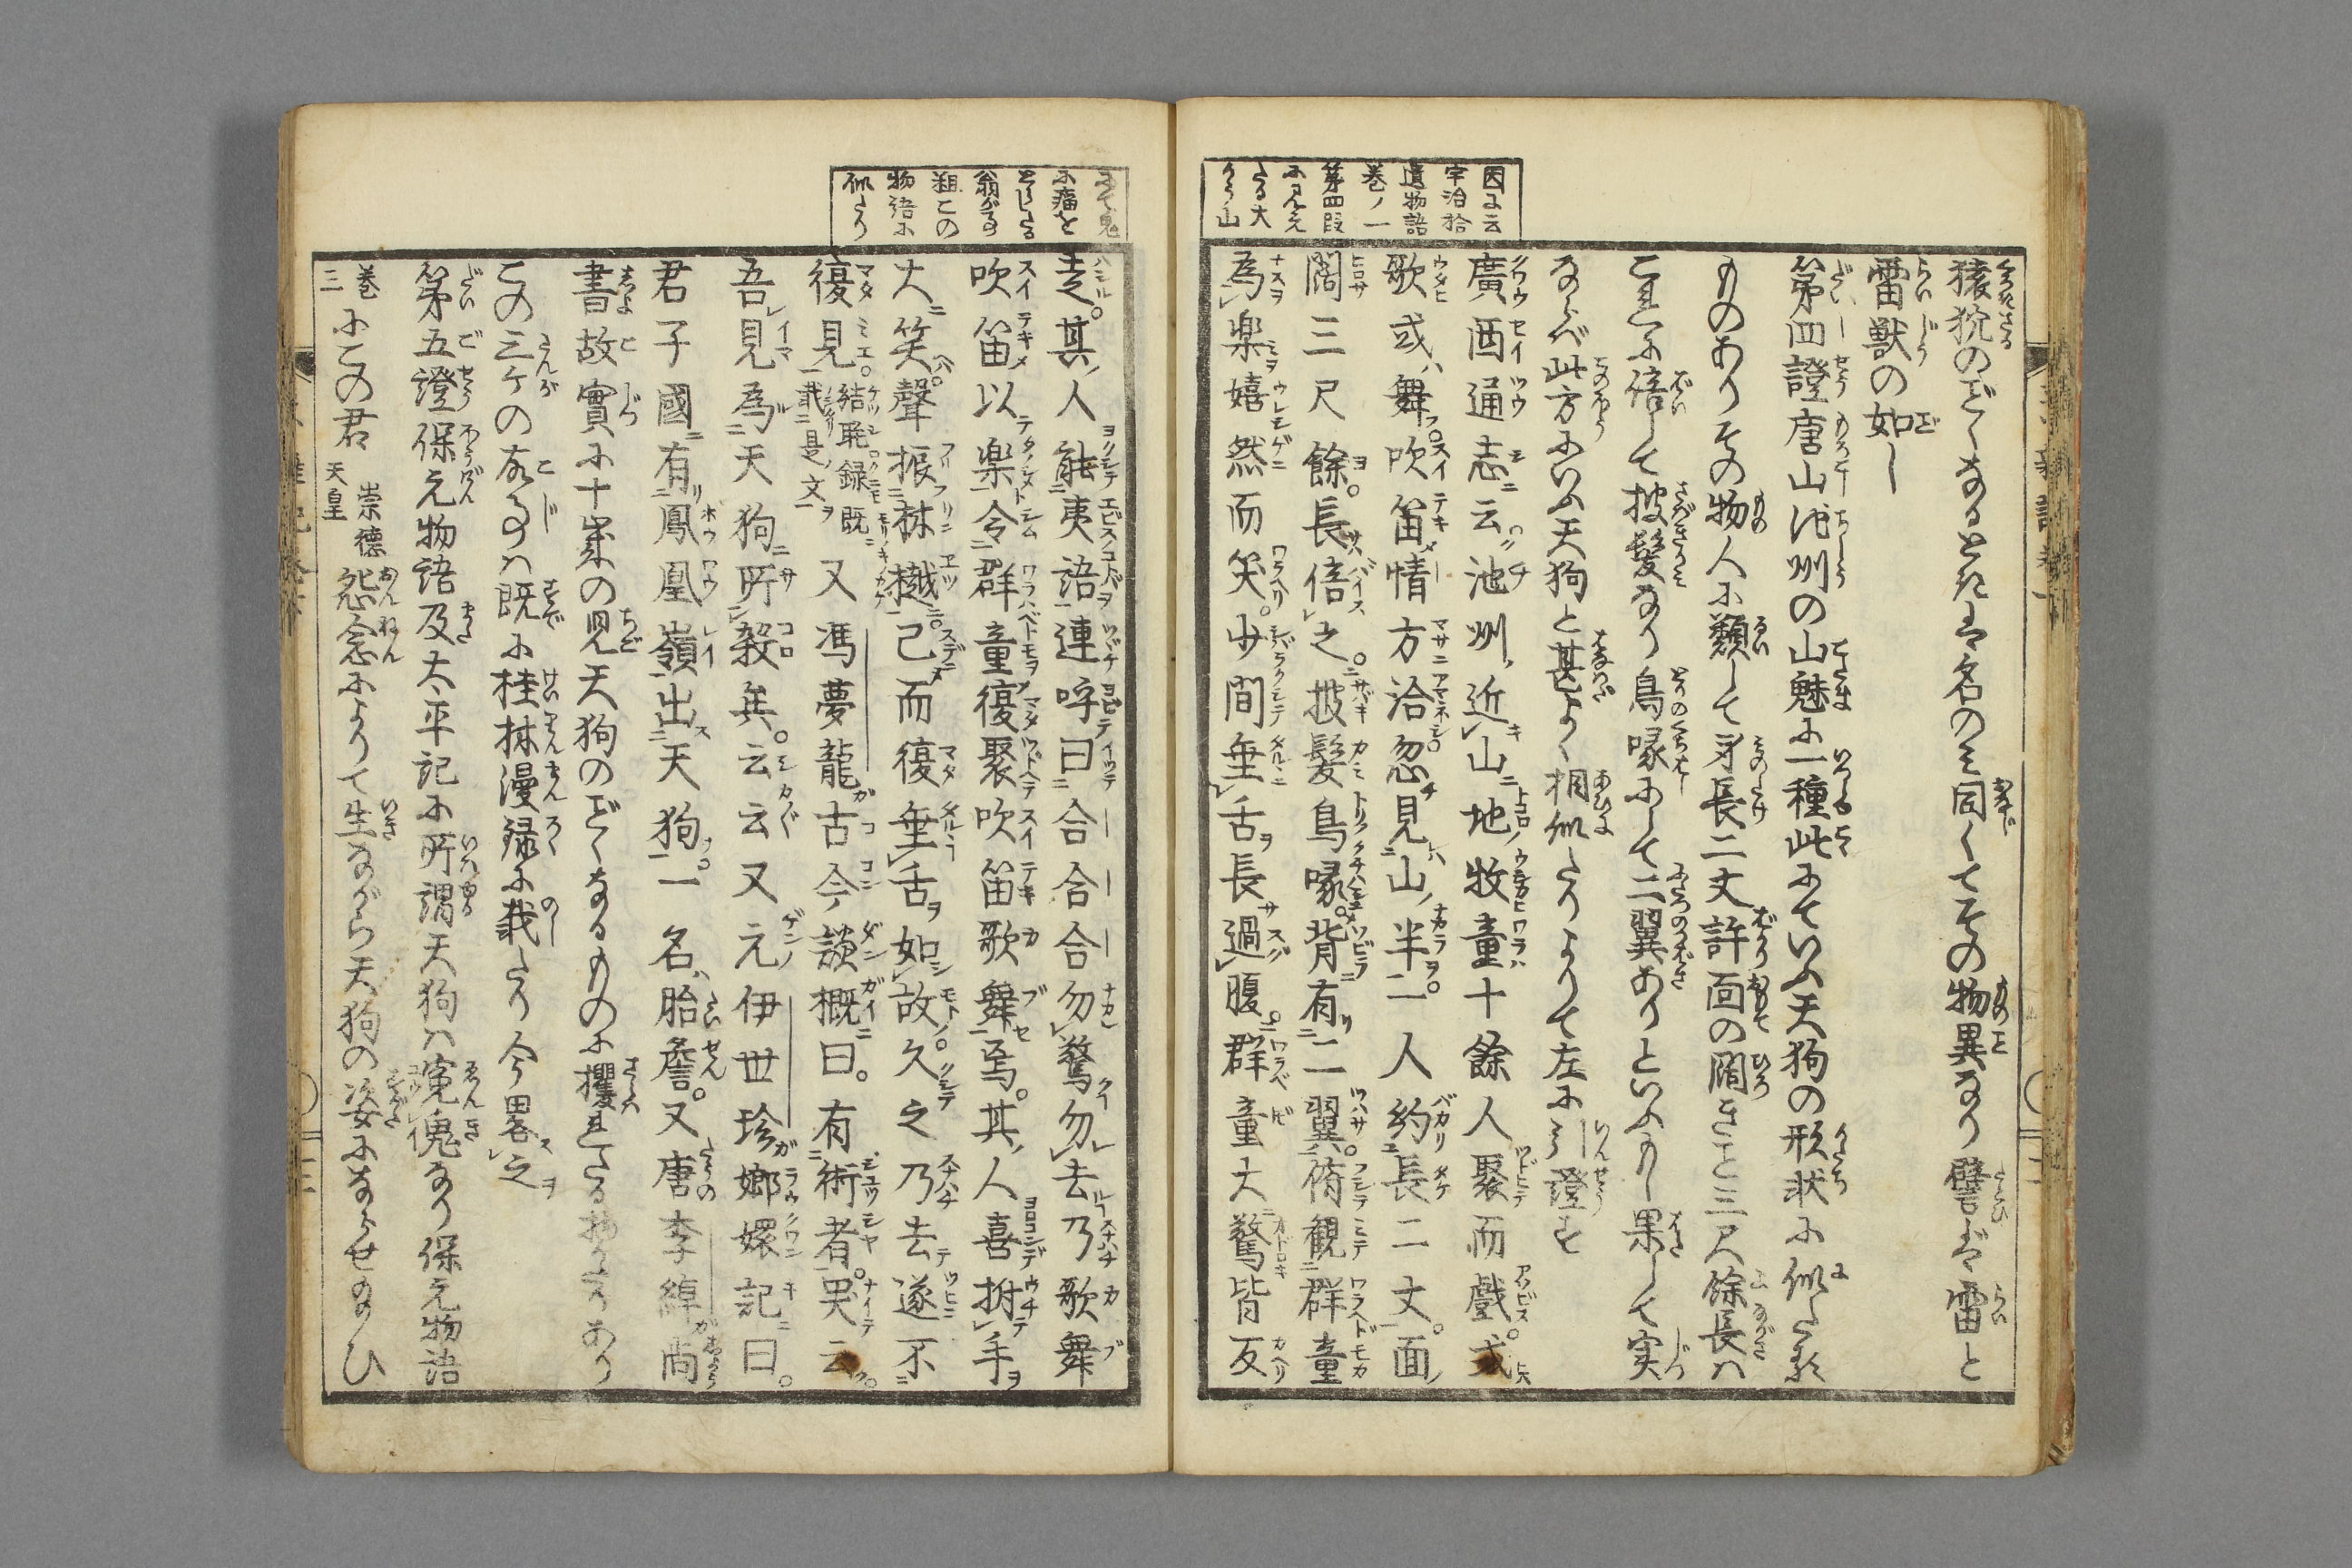 因に云
宇治拾
遺物語
巻ノ一
第四段
に見え
たる大
かう山
猿猊のごくなるときは名のミ同くてその物異なり譬ば雷と
雷獣の如し
第四證唐山池州の山魅に一種此にていふ天狗の形状に似たる
ものありその物人に類して身長二丈許面の闊きこと三尺餘長ハ
これに倍して披髪なり鳥喙にして二翼ありといふもし果して実
ならバ此方にいふ天狗と甚よく相似たりよりて左に引證せん
廣西通志云池州近山地牧童十餘人聚而戯或
歌或舞吹笛情方洽忽見山半一人約長二丈面
闊三尺餘長倍之披髪鳥喙背有二翼俯観群童
為楽嬉然而笑少間垂舌長過腹群童大驚皆反
にて鬼
に瘤を
とらるゝ
翁が事
粗この
物語に
似たり
走其人能夷語連呼曰合合合勿驚勿去乃歌舞
吹笛以楽令群童復聚吹笛歌舞焉其人喜拊手
大笑聲振林樾已而復垂舌如故久之乃去遂不
復見結毦録既載是文又馮夢龍古今談概曰有術者哭云
吾見為天狗所殺矣云云又元伊世珍嫏嬛記曰
君子國有鳳凰嶺出天狗一名胎詹又唐李綽尚
書故實に十歳の児天狗のごくなるものに攫れたる物かたりあり
この三ケの故事ハ既に桂林漫録に載たり今畧之
第五證保元物語及太平記に所謂天狗ハ寃魂なり保元物語
巻三にこの君崇徳天皇怨念によりて生ながら天狗の姿にならせ給ひ